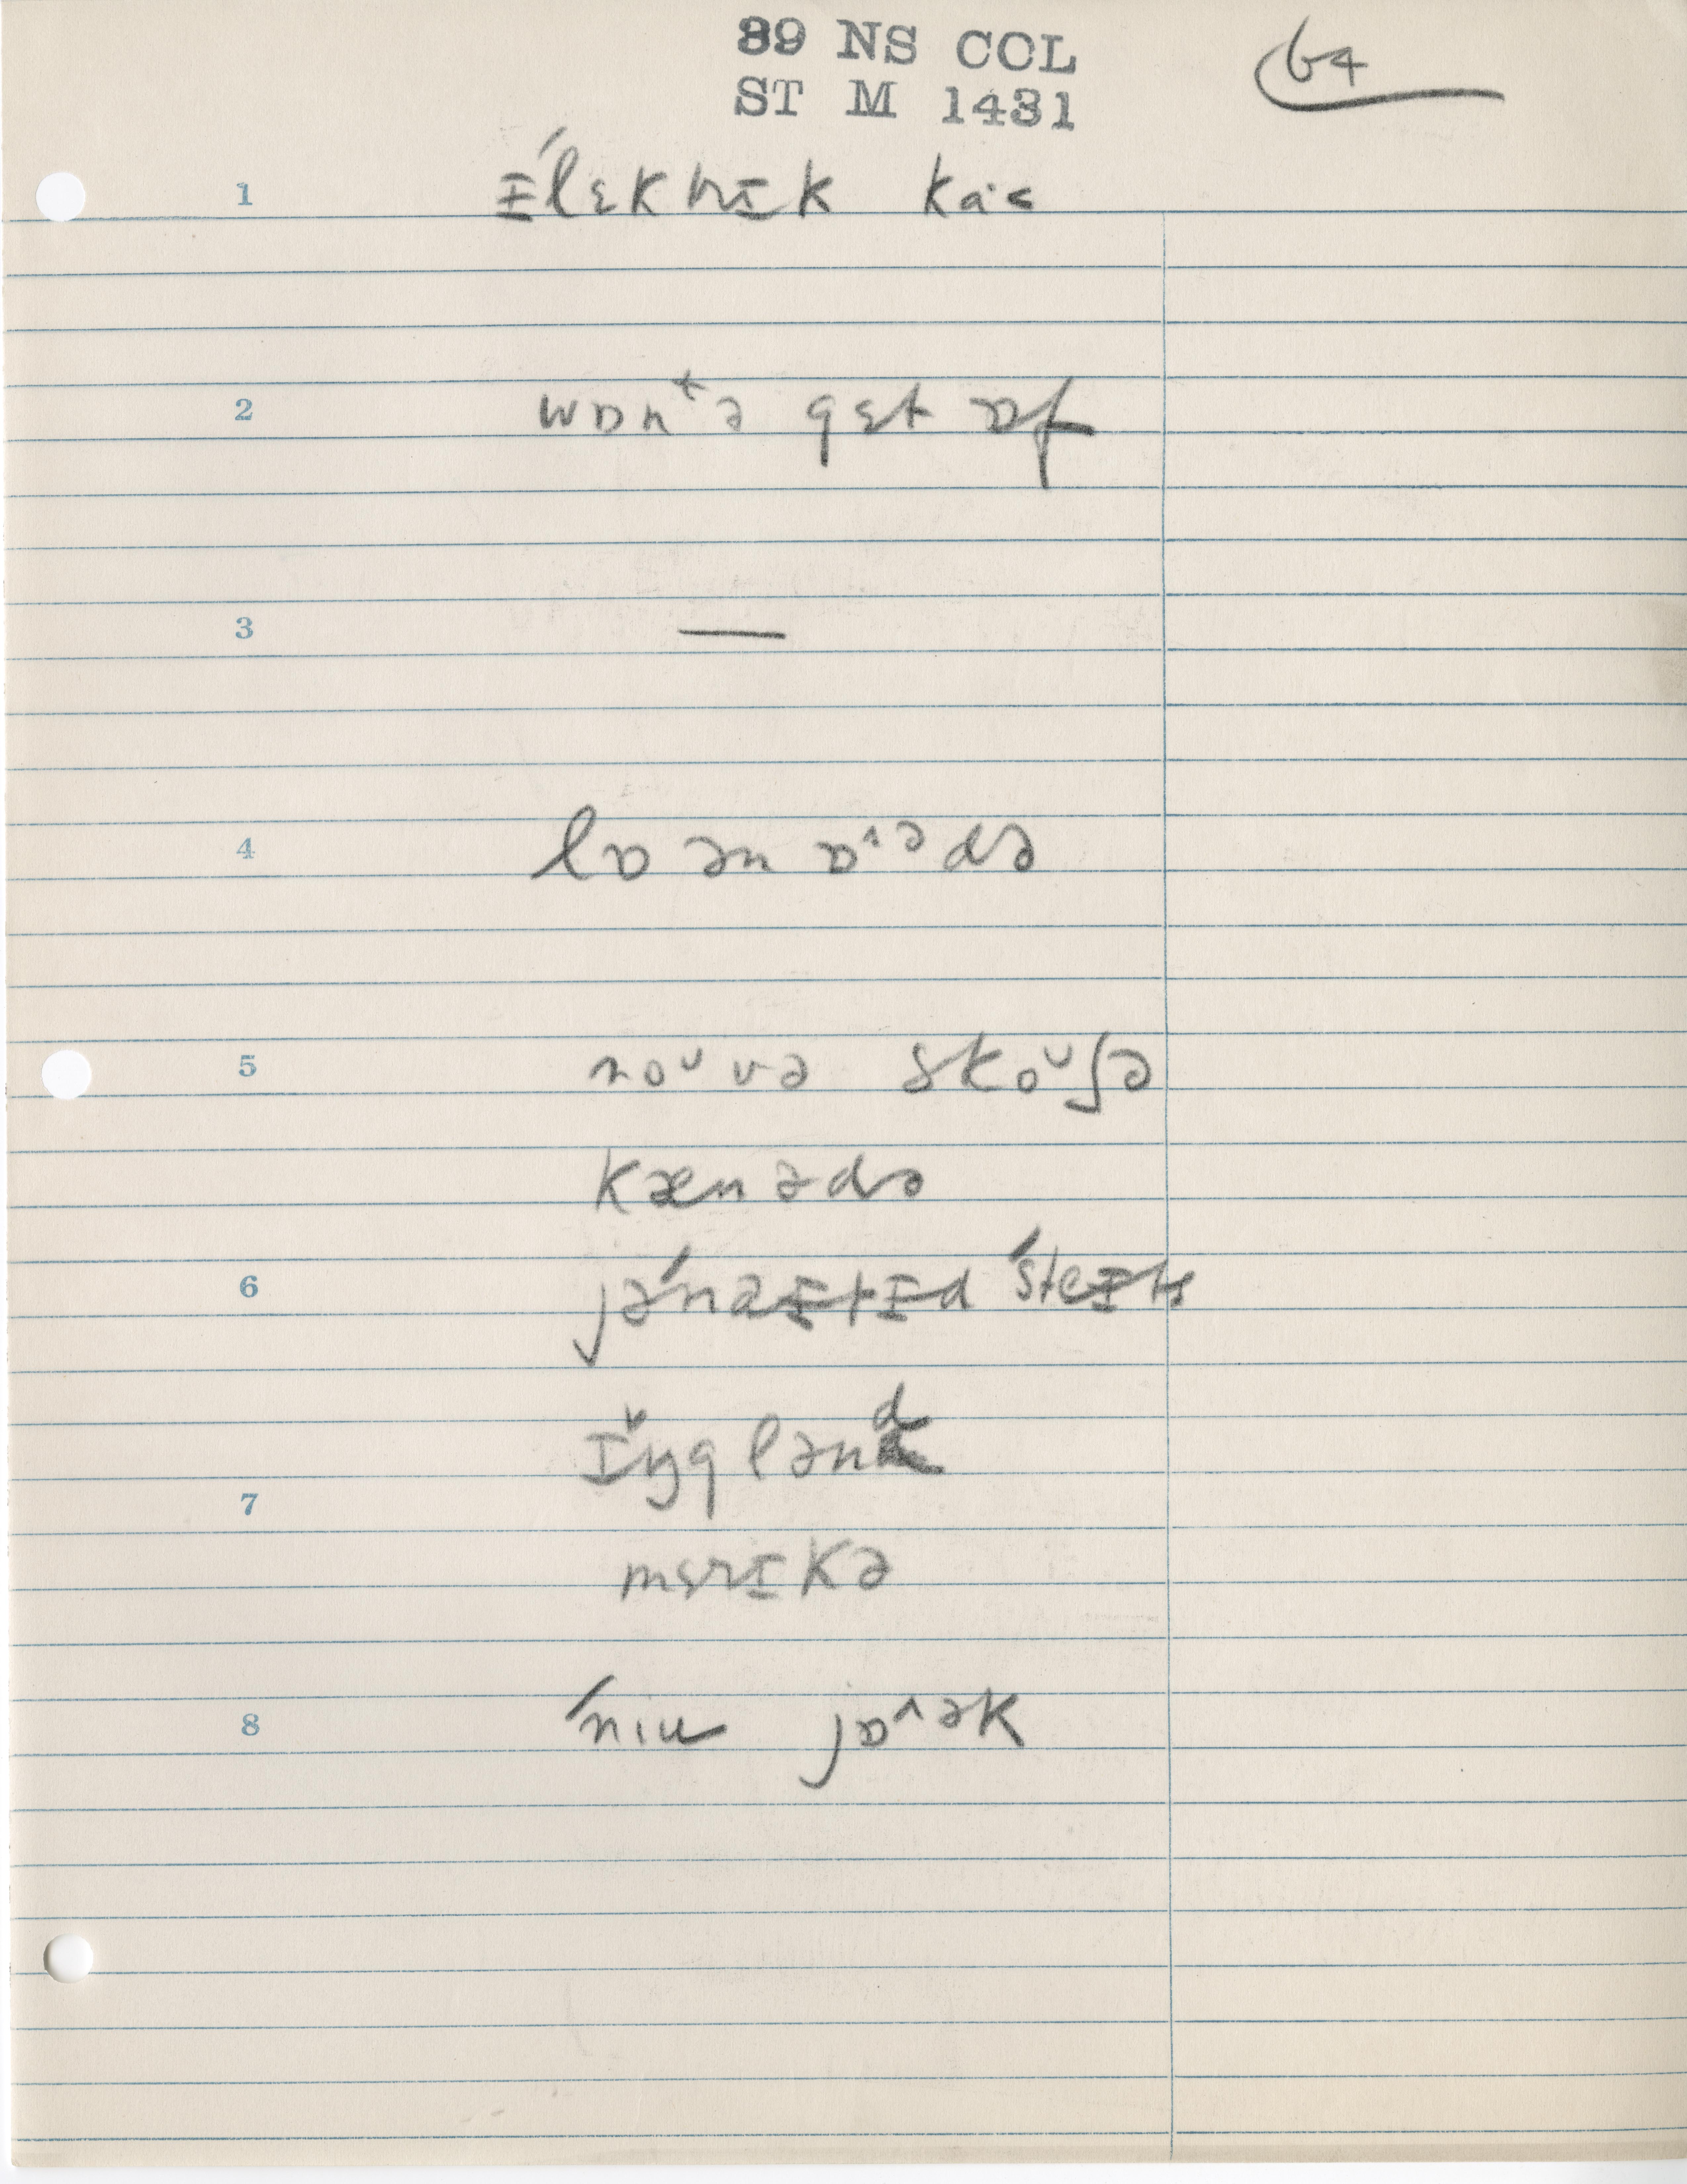 89 NS COL
ST M 1431
64
1 ɪˈlɛktrɪk ka·<
2 wɒnᵗə gɛt ɒf
3 —
4 lɒ ən ɒ^ᵊdə
5 noᵁvə skoᵁʃə
kænədə
6 jəˈnaɪtɪd ˈsteɪts
ɪ˅ŋglənᵈ
7 mɛrɪkə
8 ˈnɪu jɒ^ᵊk